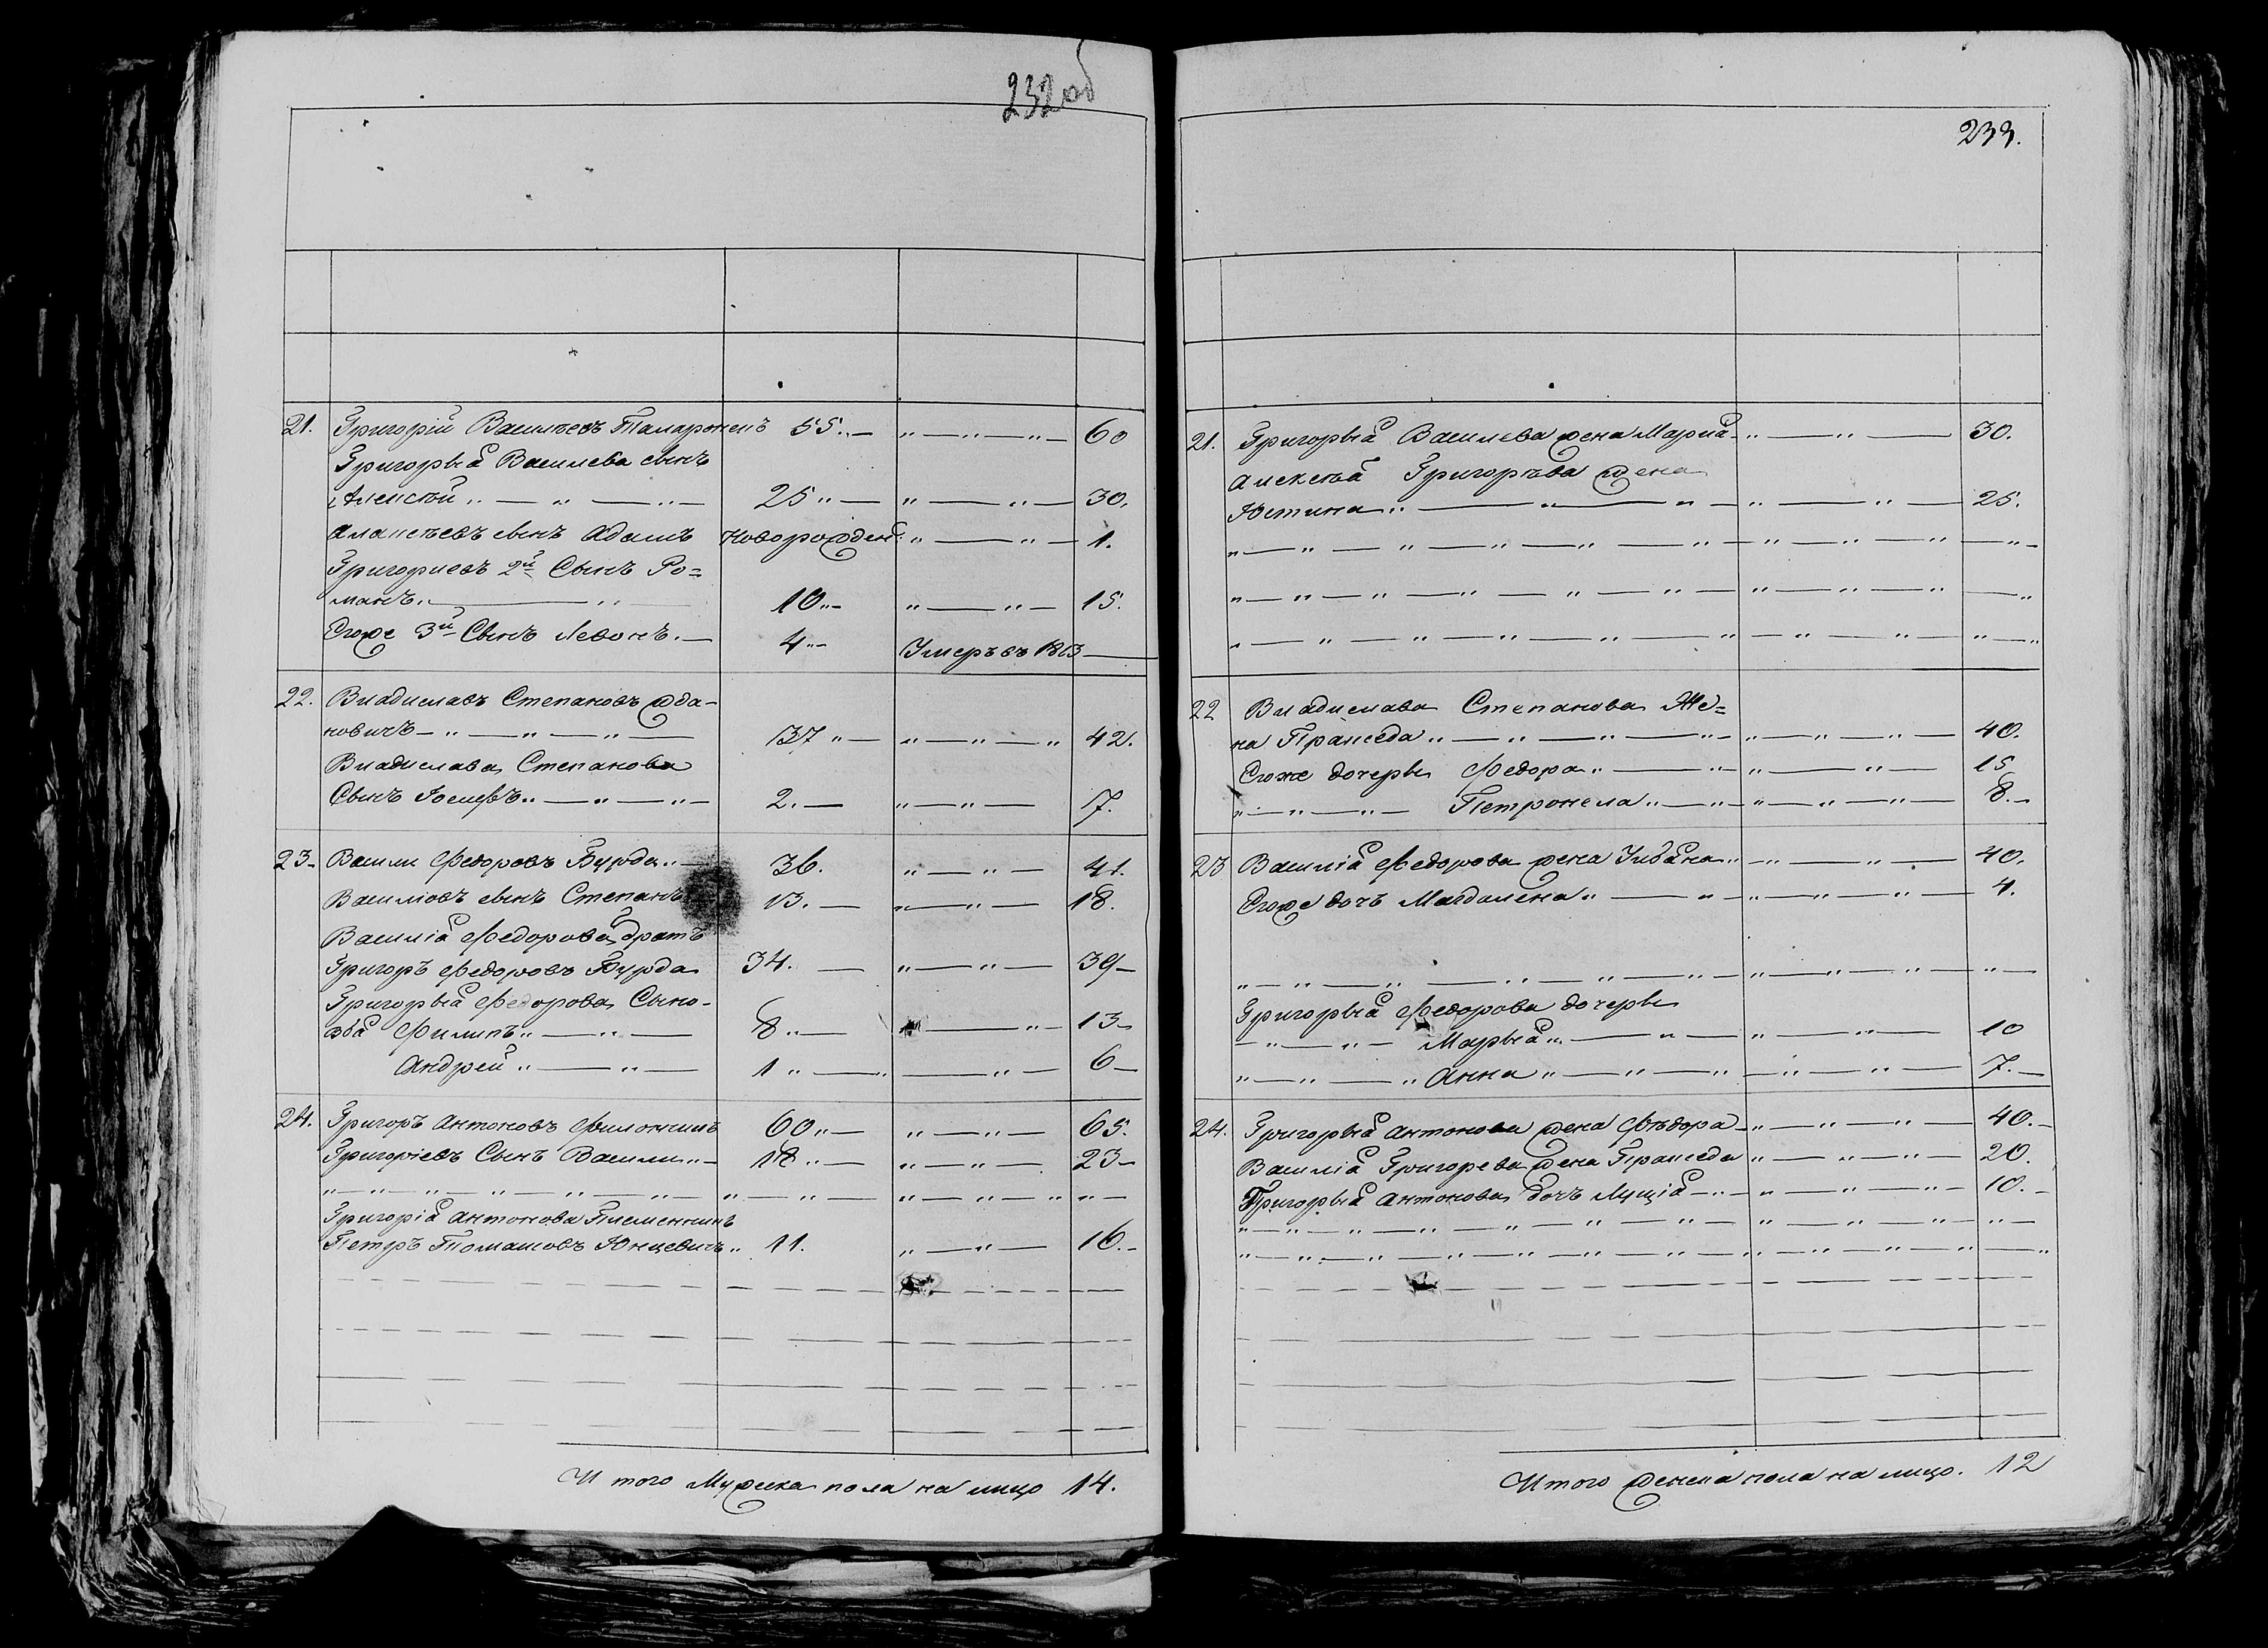 232 об
21. Григорій Васильевъ 55. 60
Григорыя Василева сынъ
Алексѣй 25 30.
Алексѣевъ сынъ Адамъ Новорожден. 1.
Григориевъ 2й Сынъ Ро=
манъ. 10 15.
Егоже 3й Сынъ Левонъ. 4 Умеръ въ 1813
22. Владиславъ Степановъ Жда-
новичъ 37 42.
Владислава Степанова
Сынъ Іосифъ 2. 7.
23. Васили Федоровъ Бурда 36. 41.
Василіовъ сынъ Степанъ 13. 18.
Василія Федорова братъ
Григоръ Федоровъ Бурда 34. 39
Григорыя Федорова Сыно-
вья Филипъ 8 13
Андрей 1 6
24. Григоръ Антоновъ 60 65.
Григоріевъ Сынъ Васили 18 23
Григорія Антонова Племенникъ
Петръ Томашовъ Юнцевичъ 11. 16.
И того Мужеска пола на лицо 14.
233.
21. Григорыя Василева жена Мария 30.
Алексѣя Григорьева жена
Юстина 25.
22 Владислава Степанова Же=
на Пракседа 40.
Егоже дочеры Федора 15
Петронела 8.
23 Василія Федорова жена Ульяна 40.
Егоже дочъ Магдалена 4.
Григорыя Федорова дочеры
Марыя 10
Анна 7.
24. Григорыя Антонова жена Фѣдора 40.
Василія Григорева жена Пракседа 20.
Григорыя Антонова дочъ Луція 10.
Итого женска пола на лицо. 12